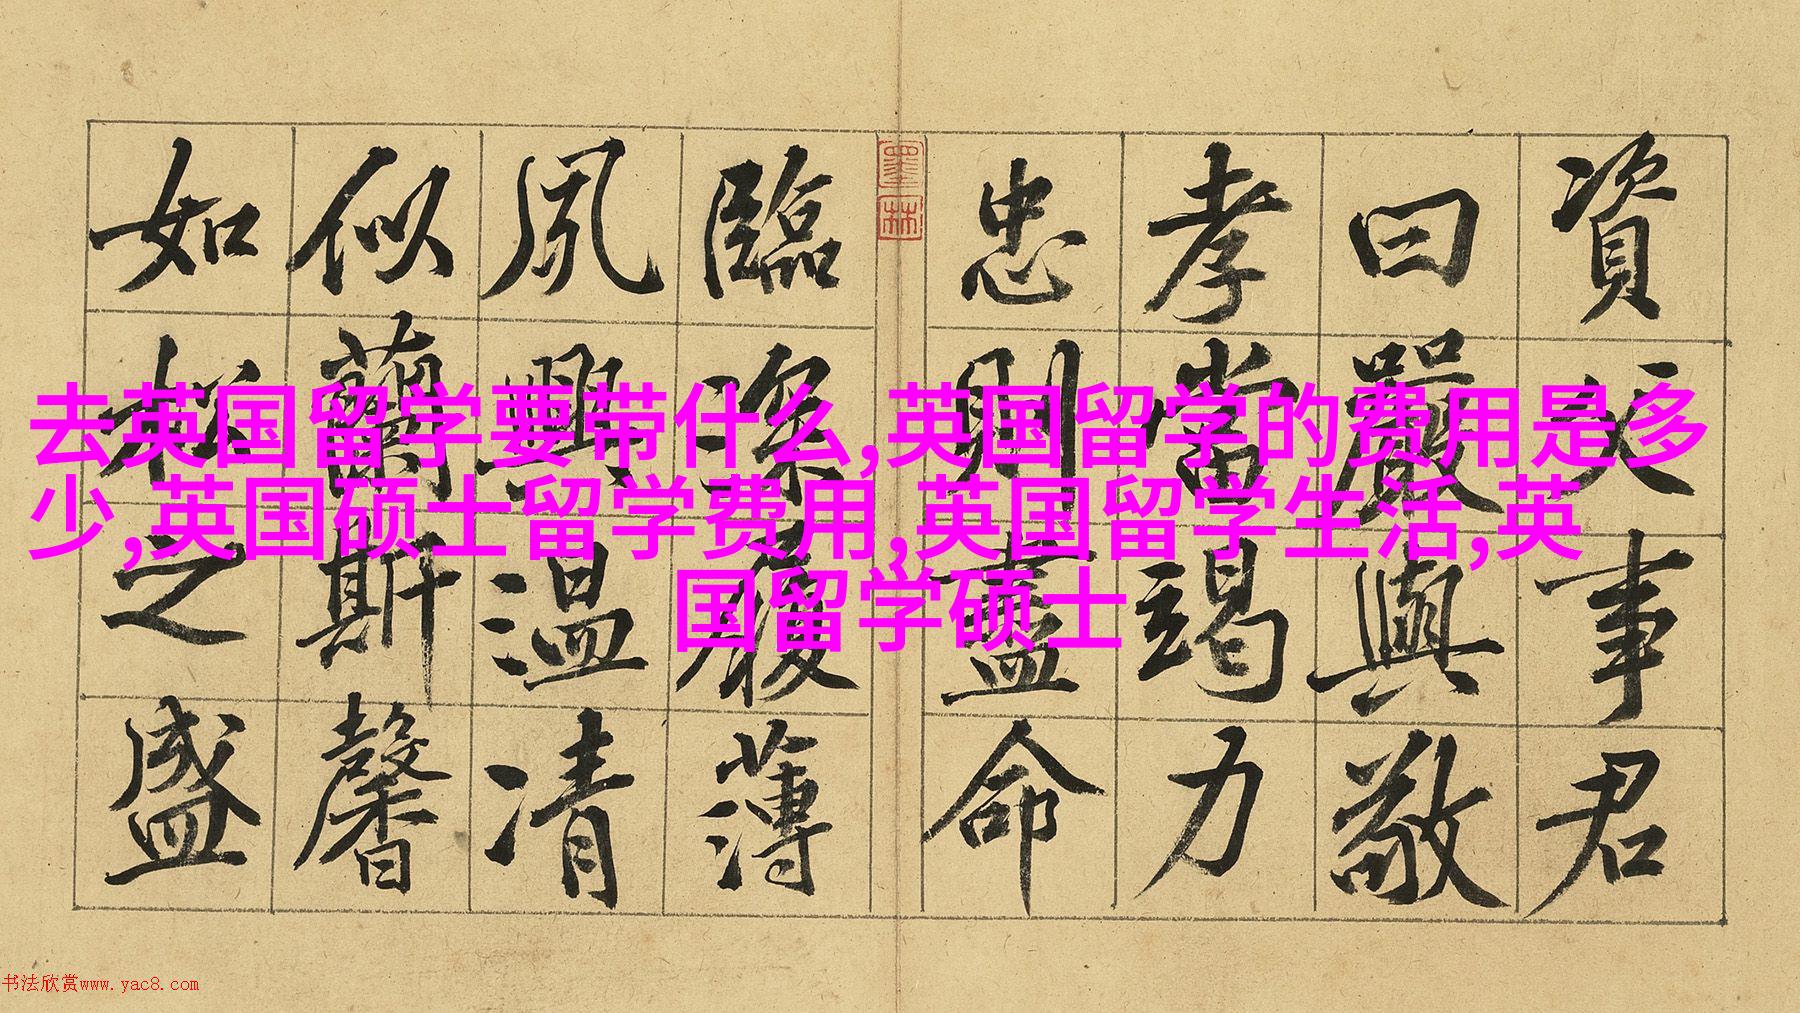 資父事君
曰嚴與敬
孝當竭力
忠則盡命
臨深履薄
夙興溫凊
似蘭斯馨
如松之盛
墨林
去英国留学要带什么,英国留学的费用是多
少,英国硕士留学费用,英国留学生活,英
国留学硕士
书法欣赏www.yac8.com